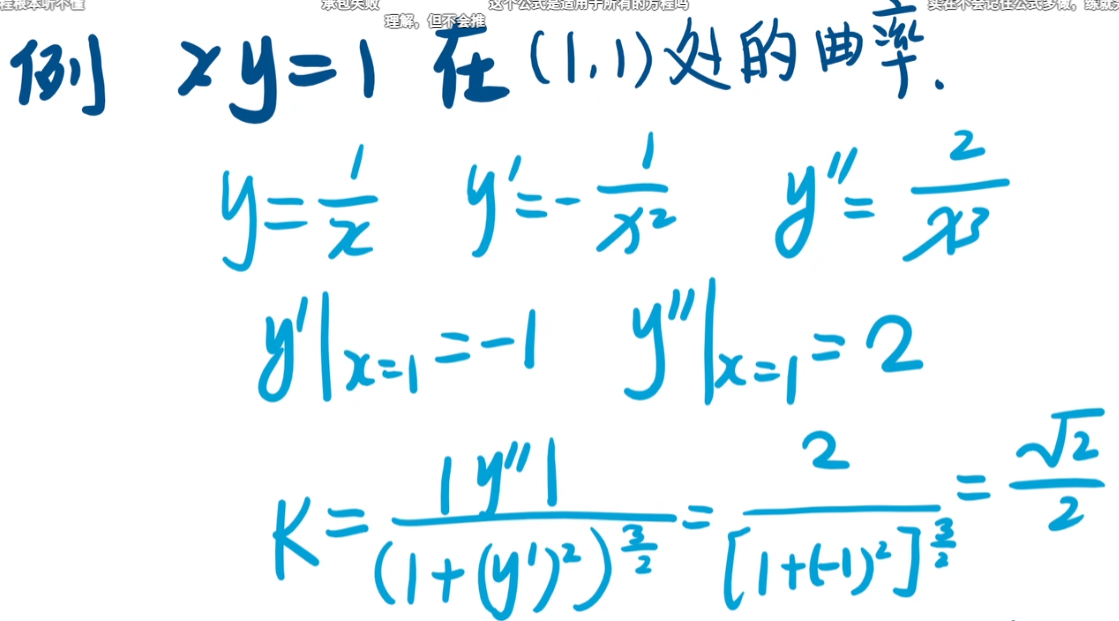 程根本听不懂 承包失败 这个公式是适用于所有的方程吗
理解，但不会推
例 xy=1 在(1,1)处的曲率.
y=1/x y'=-1/x² y''=2/x³
y'|x=1=-1 y''|x=1=2
K=|y''|/(1+(y')²)^(3/2)=2/[1+(-1)²]^(3/2)=√2/2